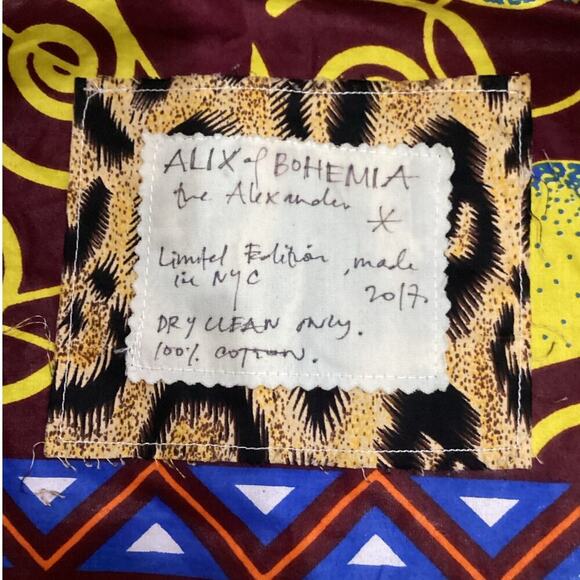 ALIX of BOHEMIA
the Alexander
Limited Edition, made
in NYC 2017.
DRY CLEAN ONLY.
100% COTTON.